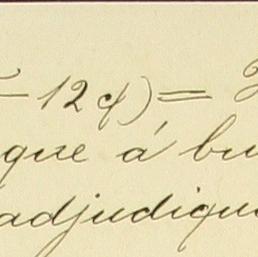 -12 y)=
que á bu
adjudique